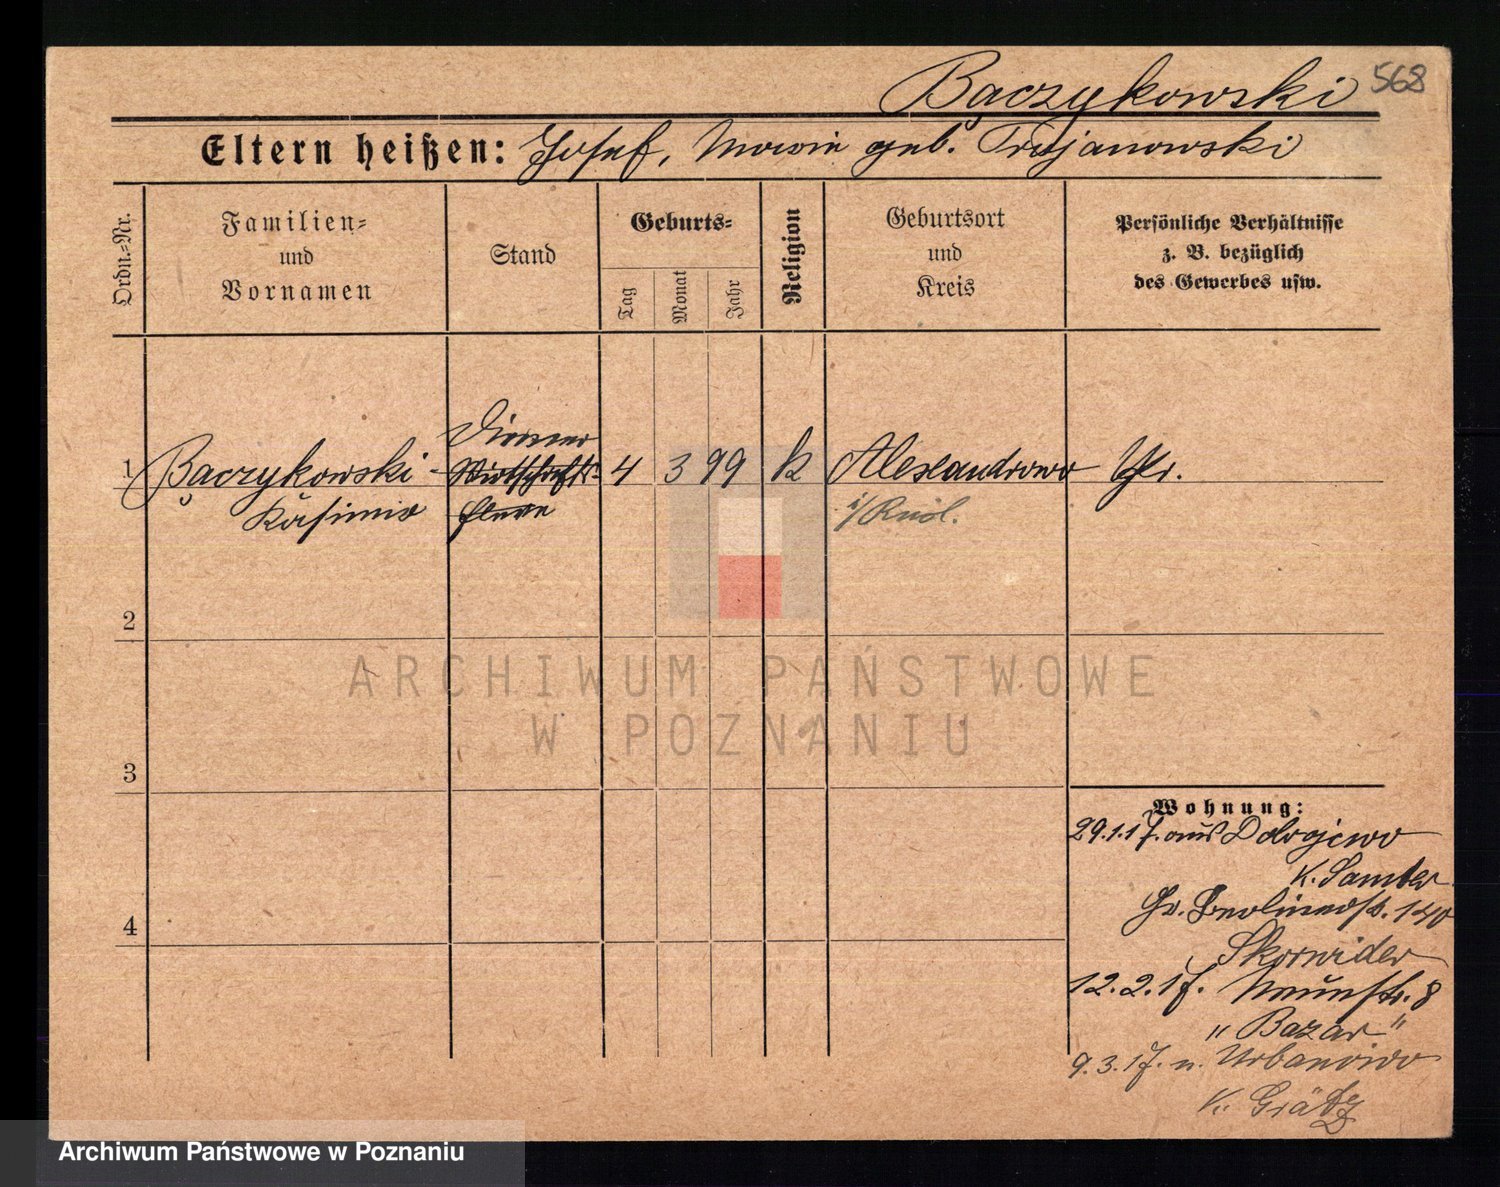 Bączykowski 568
Eltern heißen: Josef, Marie geb. Trojanowski
Ordn.-Nr.
Familien-
und
Vornamen
Stand
Geburts-
Tag
Monat
Jahr
Religion
Geburtsort
und
Kreis
Persönliche Verhältnisse
z. B. bezüglich
des Gewerbes usw.
Diener
1 Bączykowski Wirtschafts- 4 3 99 k Alexandrowo Pr.
Kasimir Eleve i/ Russl.
2
ARCHIWUM PAŃSTWOWE
W POZNANIU
3
Wohnung:
29.1.17. aus Dobrojewo
K. Samter
Gr. Berlinerstr. 140
12.2.17. Neuestr. 8
"Bazar"
9.3.17. n. Urbanowo
K. Grätz
4
Archiwum Państwowe w Poznaniu